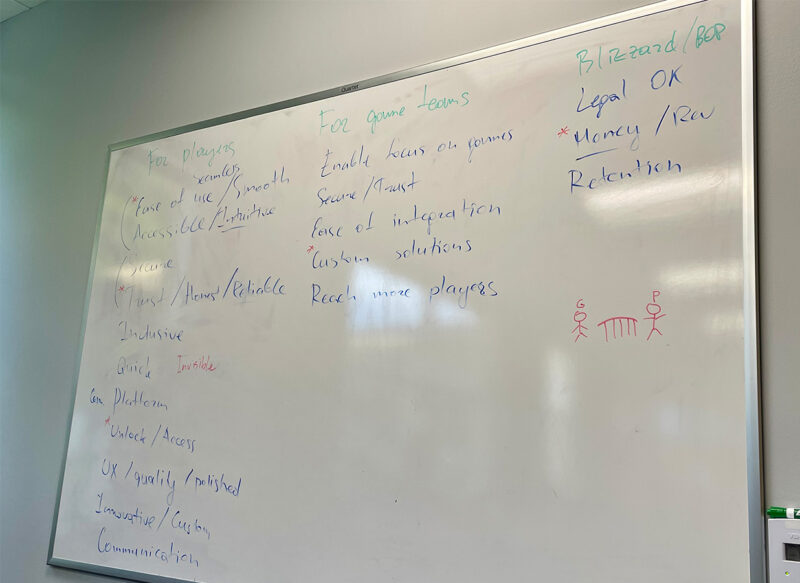 Quartet
For players
seamless
*Ease of use/Smooth
Accessible/Intuitive
Secure
*Trust/Honest/Reliable
Inclusive
Quick Invisible
Platform
*Unlock/Access
UX/quality/polished
Innovative/Custom
Communication
For game teams
Enable focus on games
Secure/Trust
Ease of integration
*Custom solutions
Reach more players
Blizzard/
Legal OK
*Money/Rev
Retention
G
P